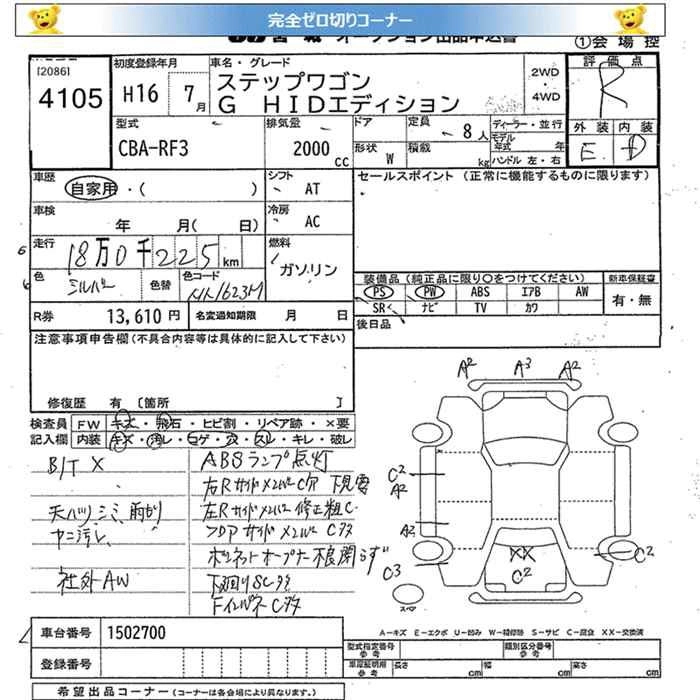 完全ゼロ切りコーナー
オークション出品申込書
①会場控
[2086] 初度登録年月 車名・グレード 評価点
4105 H16 7月 ステップワゴン 2WD R
G HIDエディション 4WD
外装 内装
E D
型式 排気量 ドア 定員 ディーラー・並行
CBA-RF3 2000cc 8人 モデル年式 年式
形状 W 積載 kg ハンドル 左・右
車歴 シフト セールスポイント (正常に機能するものに限ります)
自家用・( ) AT
車検 冷房
年 月( 日) AC
走行 燃料
18万0千225km ガソリン
色 色替 色コード
シルバー
装備品(純正品に限り○をつけてください) 新車保証書
PS PW ABS エアB AW 有・無
SR ナビ TV カワ
R券 13,610円 名変通知期限 月 日
後日品
注意事項申告欄(不具合内容等は具体的に記入して下さい)
修復歴 有 [箇所 ]
検査員 FW キズ・飛石・ヒビ割・リペア跡・×要
記入欄 内装 キズ・汚レ・コゲ・穴・スレ・キレ・破レ
B/T X ABSランプ点灯
右Rサイドメンバー C穴
天ハリシミ、雨もり 左Rサイドメンバー修正粗C
ヤニ汚レ フロアサイドメンバーCタ
ボンネットオープナー不良開らず
社外AW 下回りSCタ
FインパネCタ
A2 A3 A2
C2
A2
A2
C3
XX
C2
C2
スペア
車台番号 1502700
登録番号
A-キズ E-エクボ U-凹み W-補修跡 S-サビ C-腐食 XX-交換済
型式指定番号 参考 類別区分番号 参考
車庫証明用 参考 長さ cm 幅 cm 高さ cm
希望出品コーナー(コーナーは各会場により異なります。)